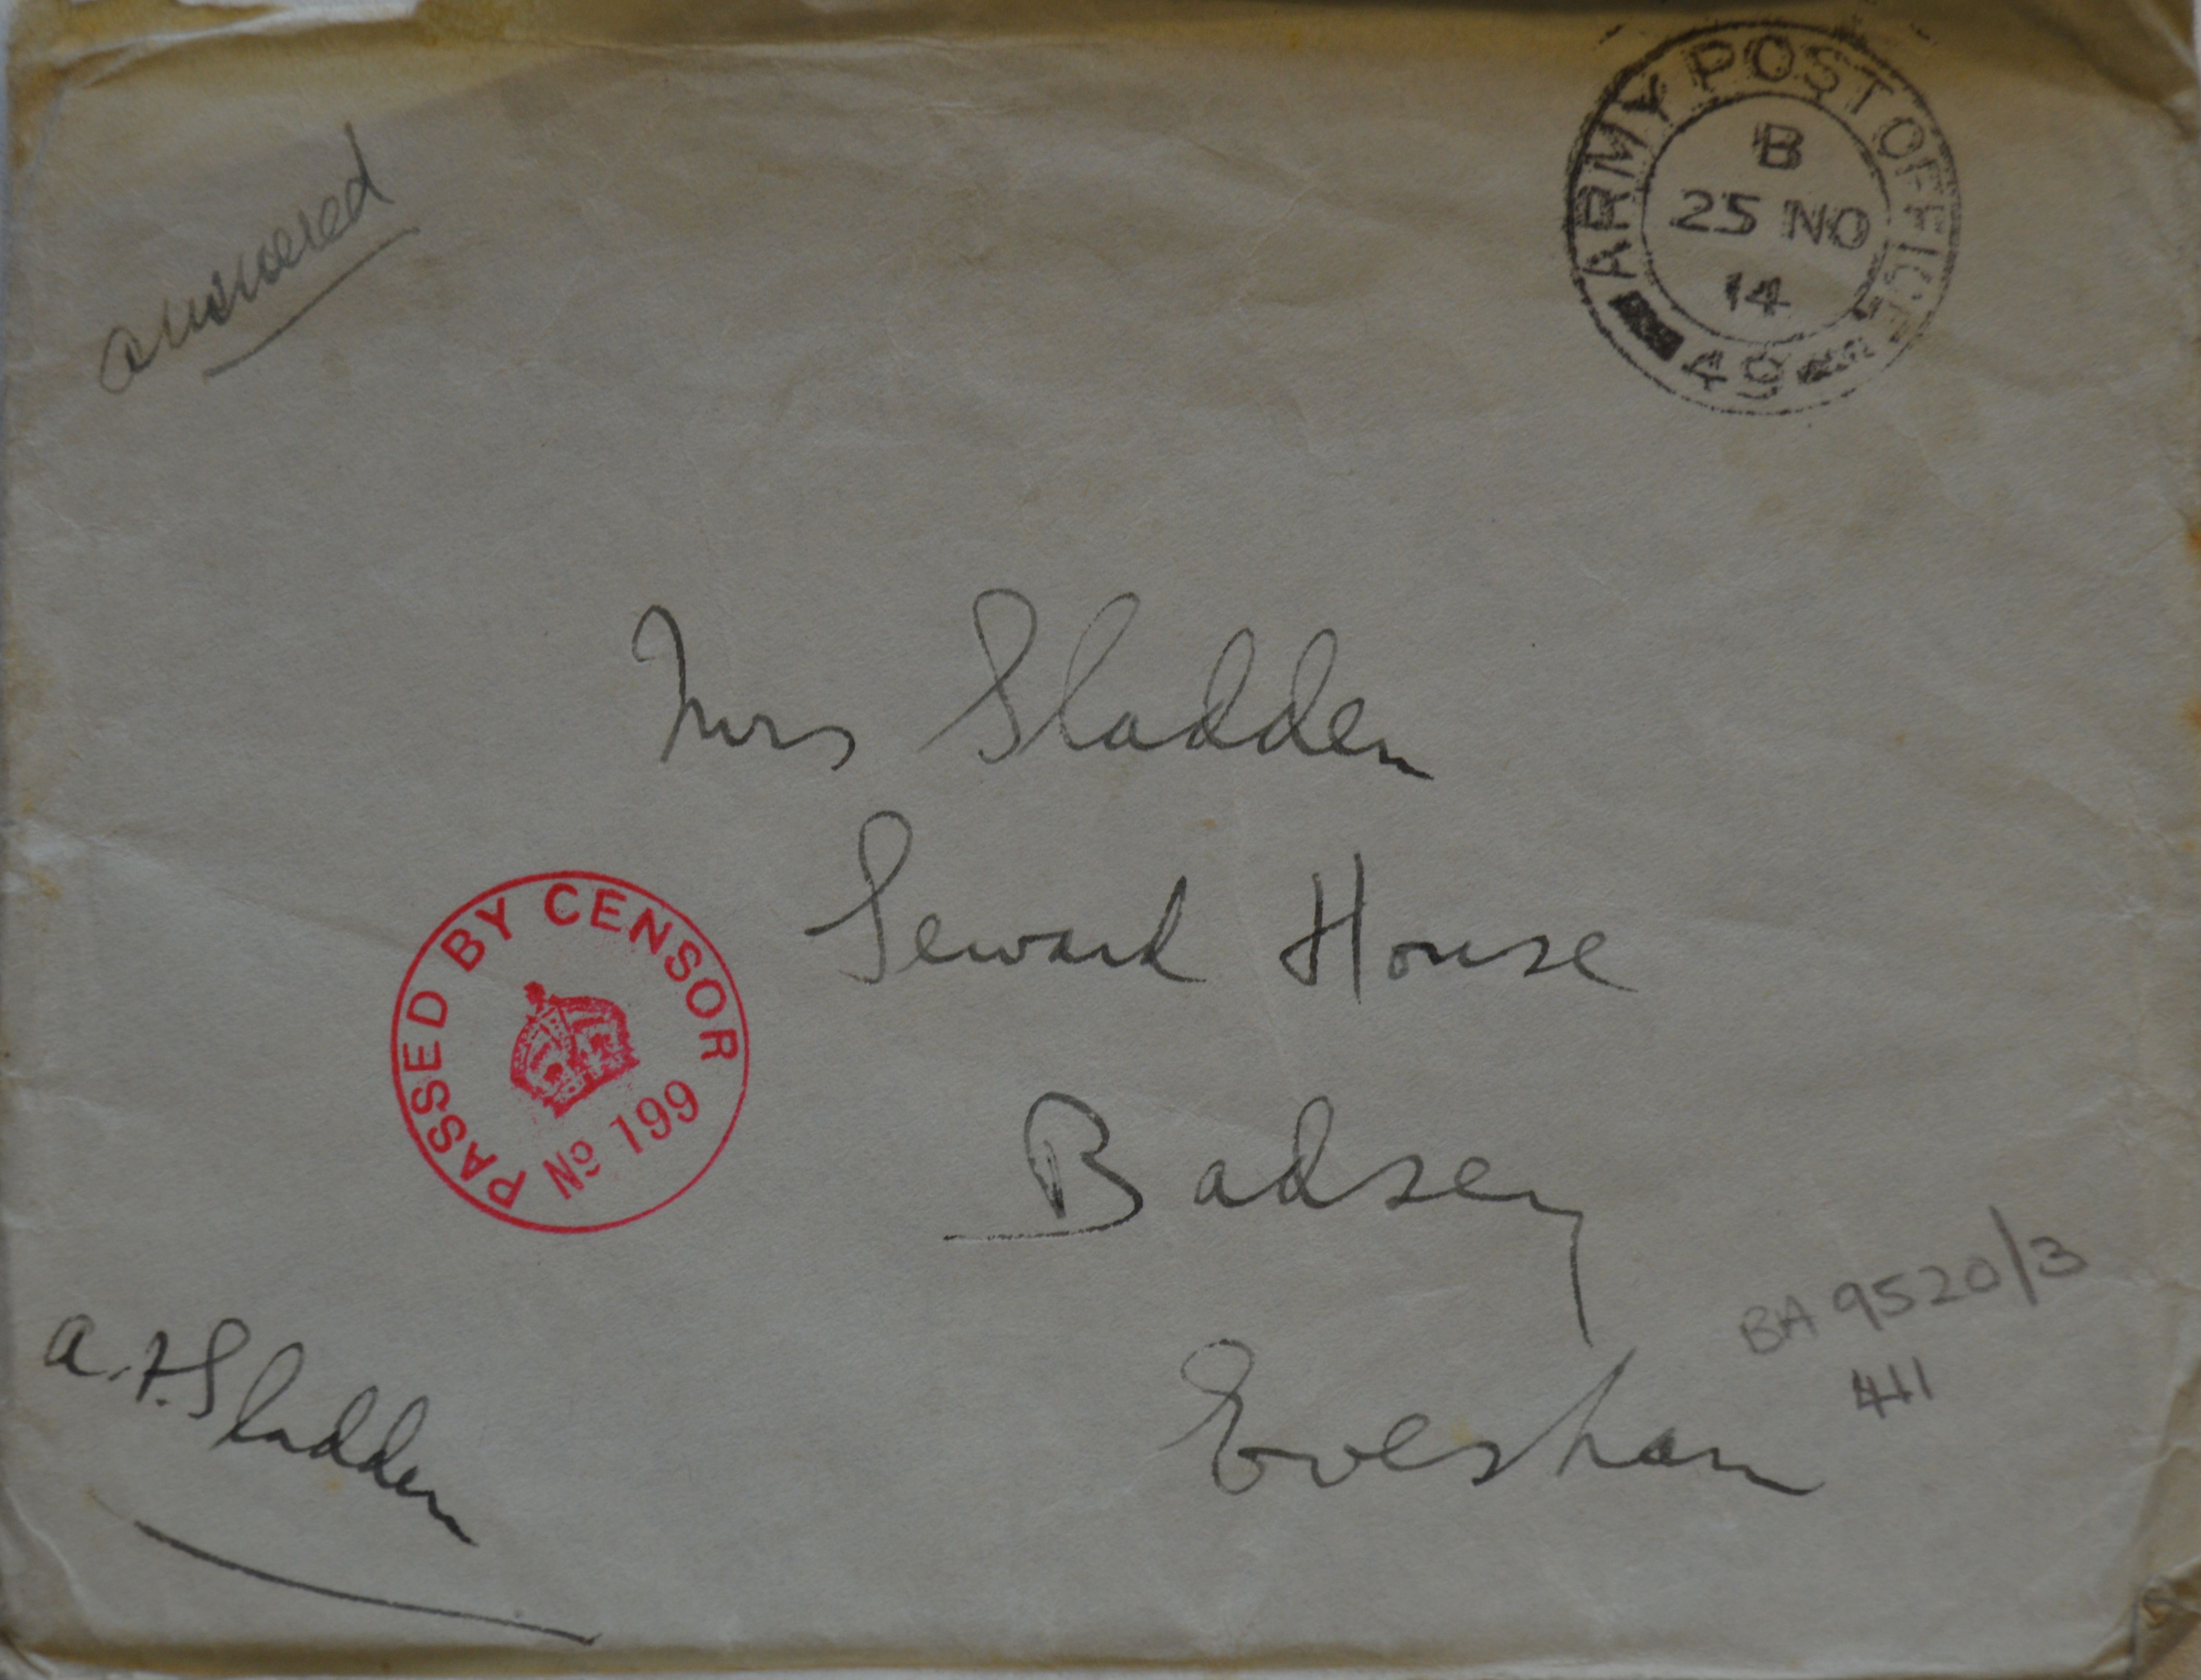 answered
ARMY POST OFFICE
B
25 NO
14
49
Mrs Sladden
Seward House
Badsey
Evesham
PASSED BY CENSOR
No 199
A.F. Sladden
BA 9520/3
411